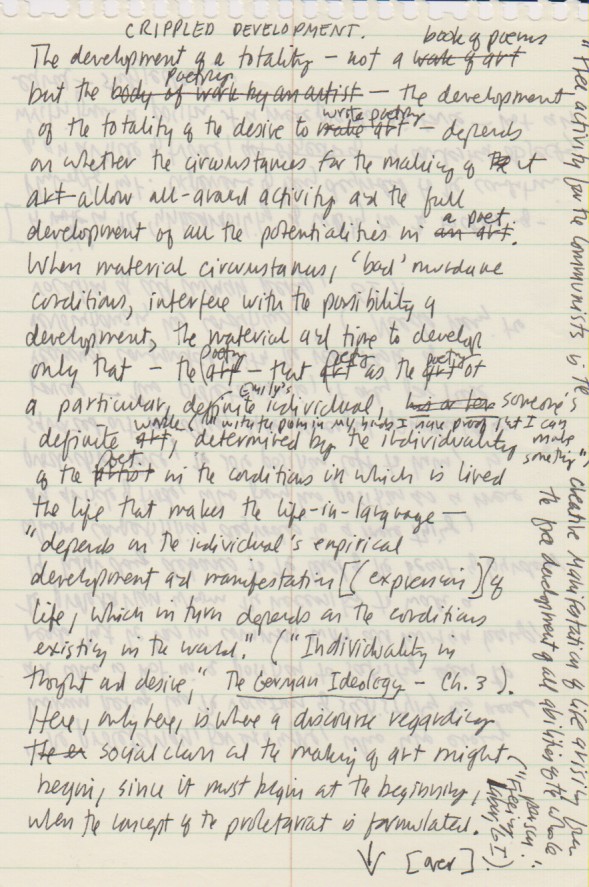 CRIPPLED DEVELOPMENT.
book of poems
The development of a totality – not a work of art
poetry
but the body of work by an artist – the development
write poetry
of the totality of the desire to make art – depends
on whether the circumstances for the making of it
art allow all-around activity and the full
a poet.
development of all the potentialities in an art.
When material circumstances, 'bad' mundane
conditions, interfere with the possibility of
development, the material and time to develop
poetry poetry poetry
only that – the art – that art as the art of
Emily's
a particular, definite individual, his or her someone's
work ("with the poem in my hands I have proof that I can make something"),
definite art, determined by the individuality
poet
of the artist in the conditions in which is lived
the life that makes the life-in-language —
"depends on the individual's empirical
development and manifestation [(expression)] of
life, which in turn depends on the conditions
existing in the world." ("Individuality in
thought and desire," The German Ideology – Ch. 3).
Here, only here, is where a discourse regarding
social class and the making of art might
begin, since it must begin at the beginning,
when the concept of the proletariat is formulated.
↓ [over].
"Free activity for the Communists is the
creative manifestation of life arising from
the free development of all abilities of the whole
person."
("Freeing
labor," GI).